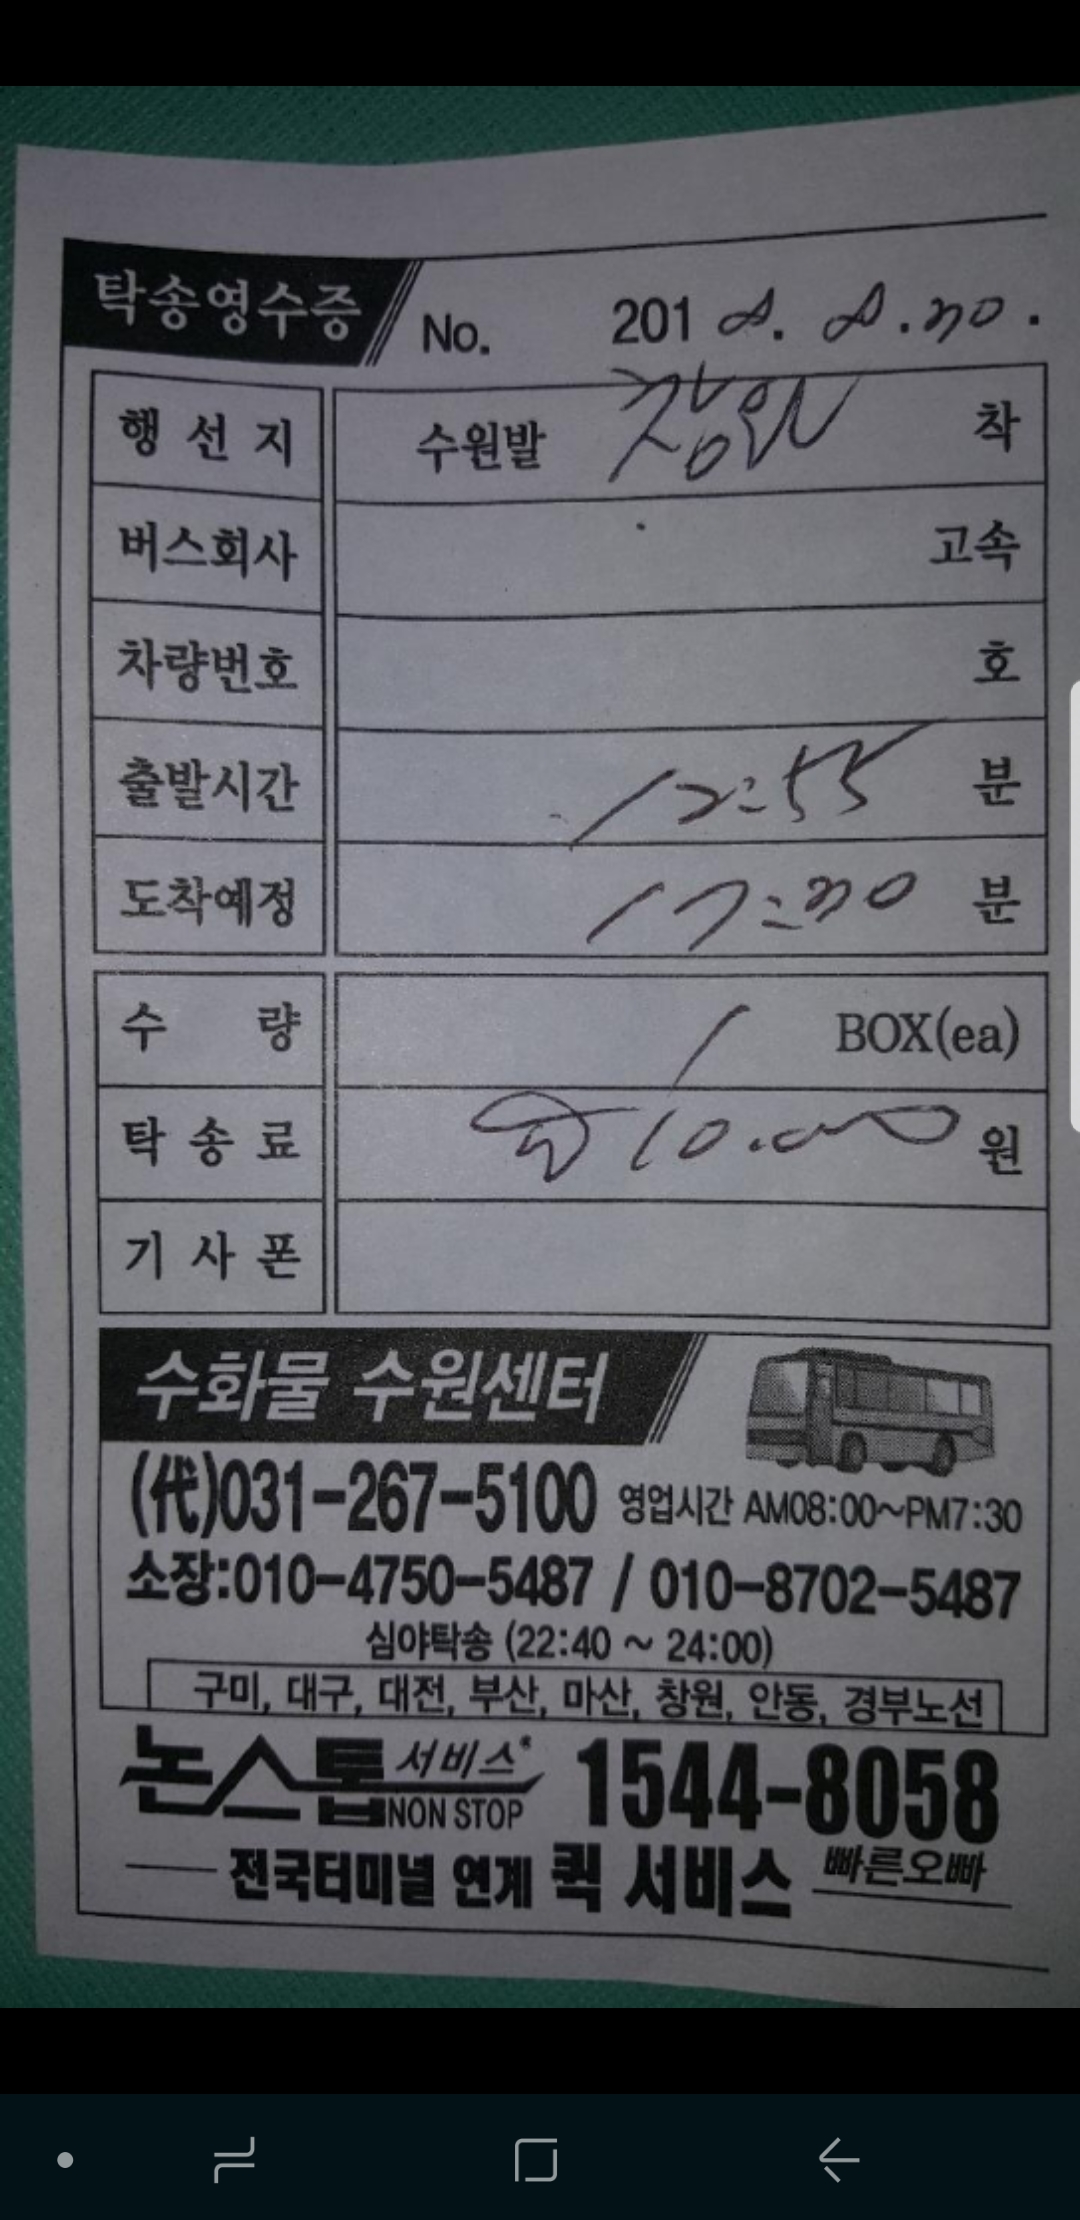 탁송영수증 No. 2018. 8. 30.
행선지 수원발 창원 착
버스회사 고속
차량번호 호
출발시간 12:55 분
도착예정 17:30 분
수 량 1 BOX(ea)
탁송료 10.000 원
기사폰
수화물 수원센터
(代)031-267-5100 영업시간 AM08:00~PM7:30
소장:010-4750-5487 / 010-8702-5487
심야탁송 (22:40 ~ 24:00)
구미, 대구, 대전, 부산, 마산, 창원, 안동, 경부노선
논스톱 서비스 NON STOP 1544-8058
전국터미널 연계 퀵 서비스 빠른오빠